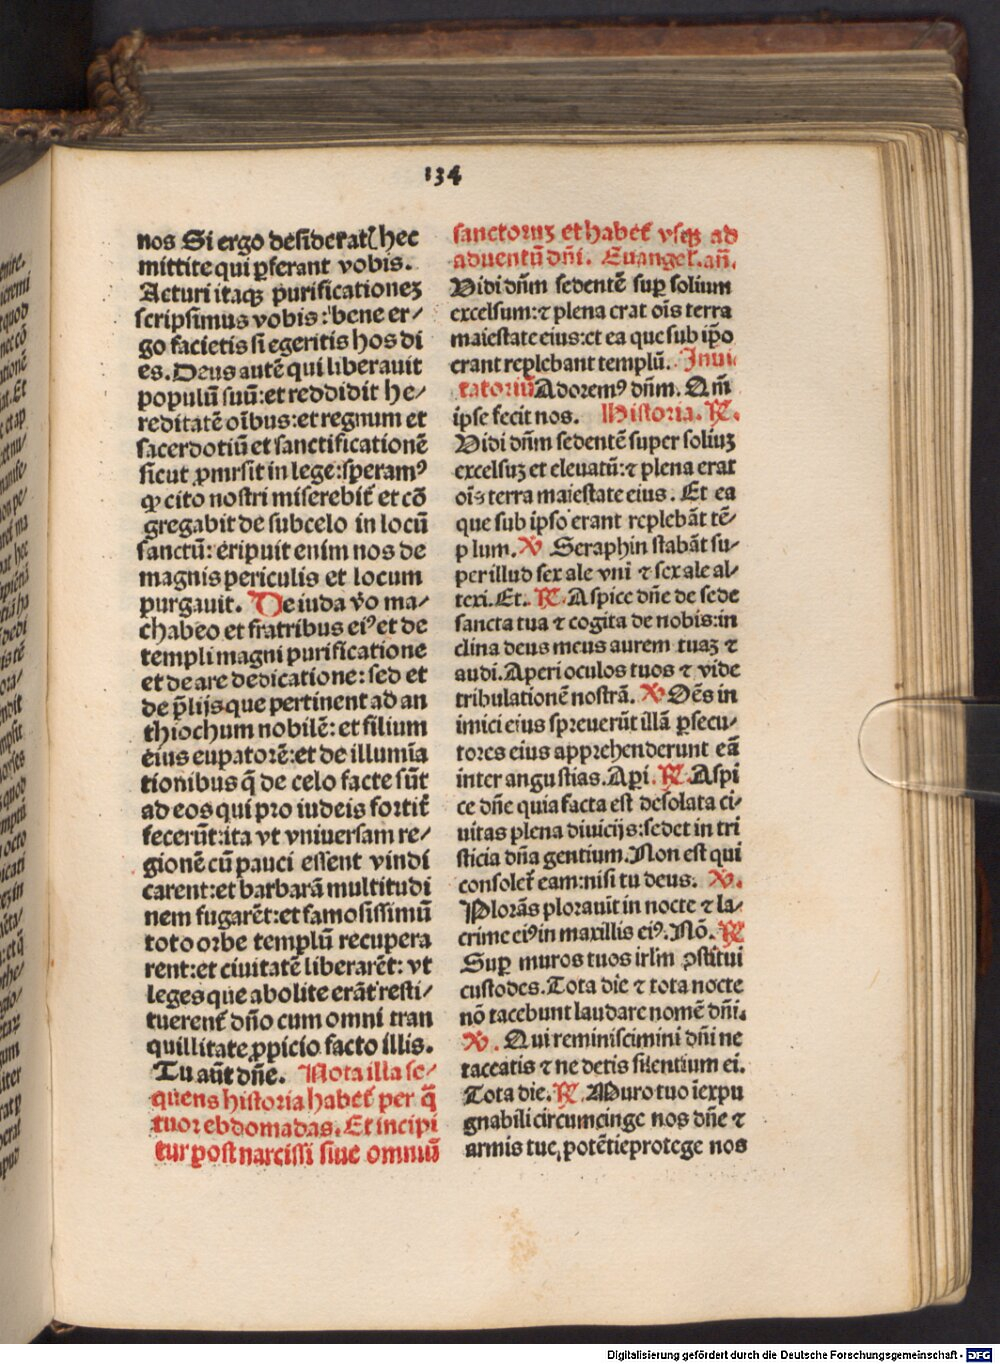 134
nos Si ergo desiderat̃ hec
mittite qui ꝑferant vobis.
Acturi itaqꝫ purificationeꝫ
scripsimus vobis: bene er⸗
go facietis si egeritis hos di
es. Deus autē qui liberauit
populū suū: et reddidit he⸗
reditatē oībus: et regnum et
sacerdotiū et sanctificationē
sicut ꝓmisit in lege: speramꝰ
ꝙ cito nostri miserebit̃ et cō
gregabit de subcelo in locū
sanctū: eripuit enim nos de
magnis periculis et locum
purgauit. De iuda v̄o ma⸗
chabeo et fratribus eiꝰ et de
templi magni purificatione
et de are dedicatione: sed et
de p̄lijs que pertinent ad an
thiochum nobilē: et filium
eius eupatorē: et de illumīa
tionibus q̄ de celo facte sūt
ad eos qui pro iudeis fortit̃
fecerūt: ita vt vniuersam re⸗
gionē cū pauci essent vindi
carent: et barbarā multitudi
nem fugarēt: et famosissimū
toto orbe templū recupera
rent: et ciuitatē liberarēt: vt
leges que abolite erāt resti⸗
tuerent̃ dño cum omni tran
quillitate ꝓpicio facto illis.
Tu aūt dñe. Nota illa se⸗
quens historia habet̃ per q̄
tuor ebdomadas. Et incipi
tur post narcissi siue omniū
sanctoruꝫ et habet̃ vsqꝫ ad
aduentū dñi. Euangeł. añ.
Vidi dñm sedentē suꝑ solium
excelsum: ⁊ plena erat oīs terra
maiestate eius: et ea que sub ip̄o
erant replebant templū. Inui
tatoriū Adoremꝰ dñm. Qm̄
ipse fecit nos. Historia. ℟.
Vidi dñm sedentē super soliuꝫ
excelsuꝫ et eleuatū: ⁊ plena erat
oīs terra maiestate eius. Et ea
que sub ipso erant replebāt tē⸗
plum. ℣ Seraphin stabāt su⸗
per illud sex ale vni ⁊ sex ale al⸗
teri. Et. ℟. Aspice dñe de sede
sancta tua ⁊ cogita de nobis: in
clina deus meus aurem tuaꝫ ⁊
audi. Aperi oculos tuos ⁊ vide
tribulationē nostrā. ℣ Oēs in
imici eius spreuerūt illā ꝑsecu⸗
tores eius apprehenderunt eā
inter angustias. Aꝑi. ℟. Aspi
ce dñe quia facta est desolata ci⸗
uitas plena diuicijs: sedet in tri
sticia dña gentium. Non est qui
consolet̃ eam: nisi tu deus. ℣.
Plorās plorauit in nocte ⁊ la⸗
crime eiꝰ in maxillis eiꝰ. Nō. ℟
Suꝑ muros tuos irlm̄ ꝯstitui
custodes. Tota die ⁊ tota nocte
nō tacebunt laudare nomē dñi.
℣. Qui reminiscimini dñi ne
taceatis ⁊ ne detis silentium ei.
Tota die. ℟. Muro tuo īexpu
gnabili circumcinge nos dñe ⁊
armis tue potētie protege nos
Digitalisierung gefördert durch die Deutsche Forschungsgemeinschaft - DFG